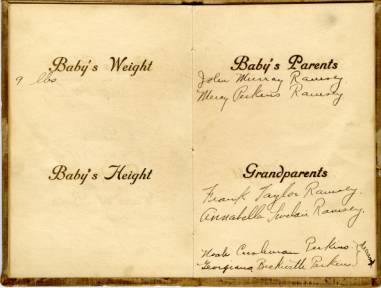 Baby's Weight
9 lbs
Baby's Height
Baby's Parents
John Murray Ramsey
Mercy Perkins Ramsey
Grandparents
Frank Taylor Ramsey.
Annabella Ramsey.
Noah Cushman Perkins
Georgiana Beckwith Perkins